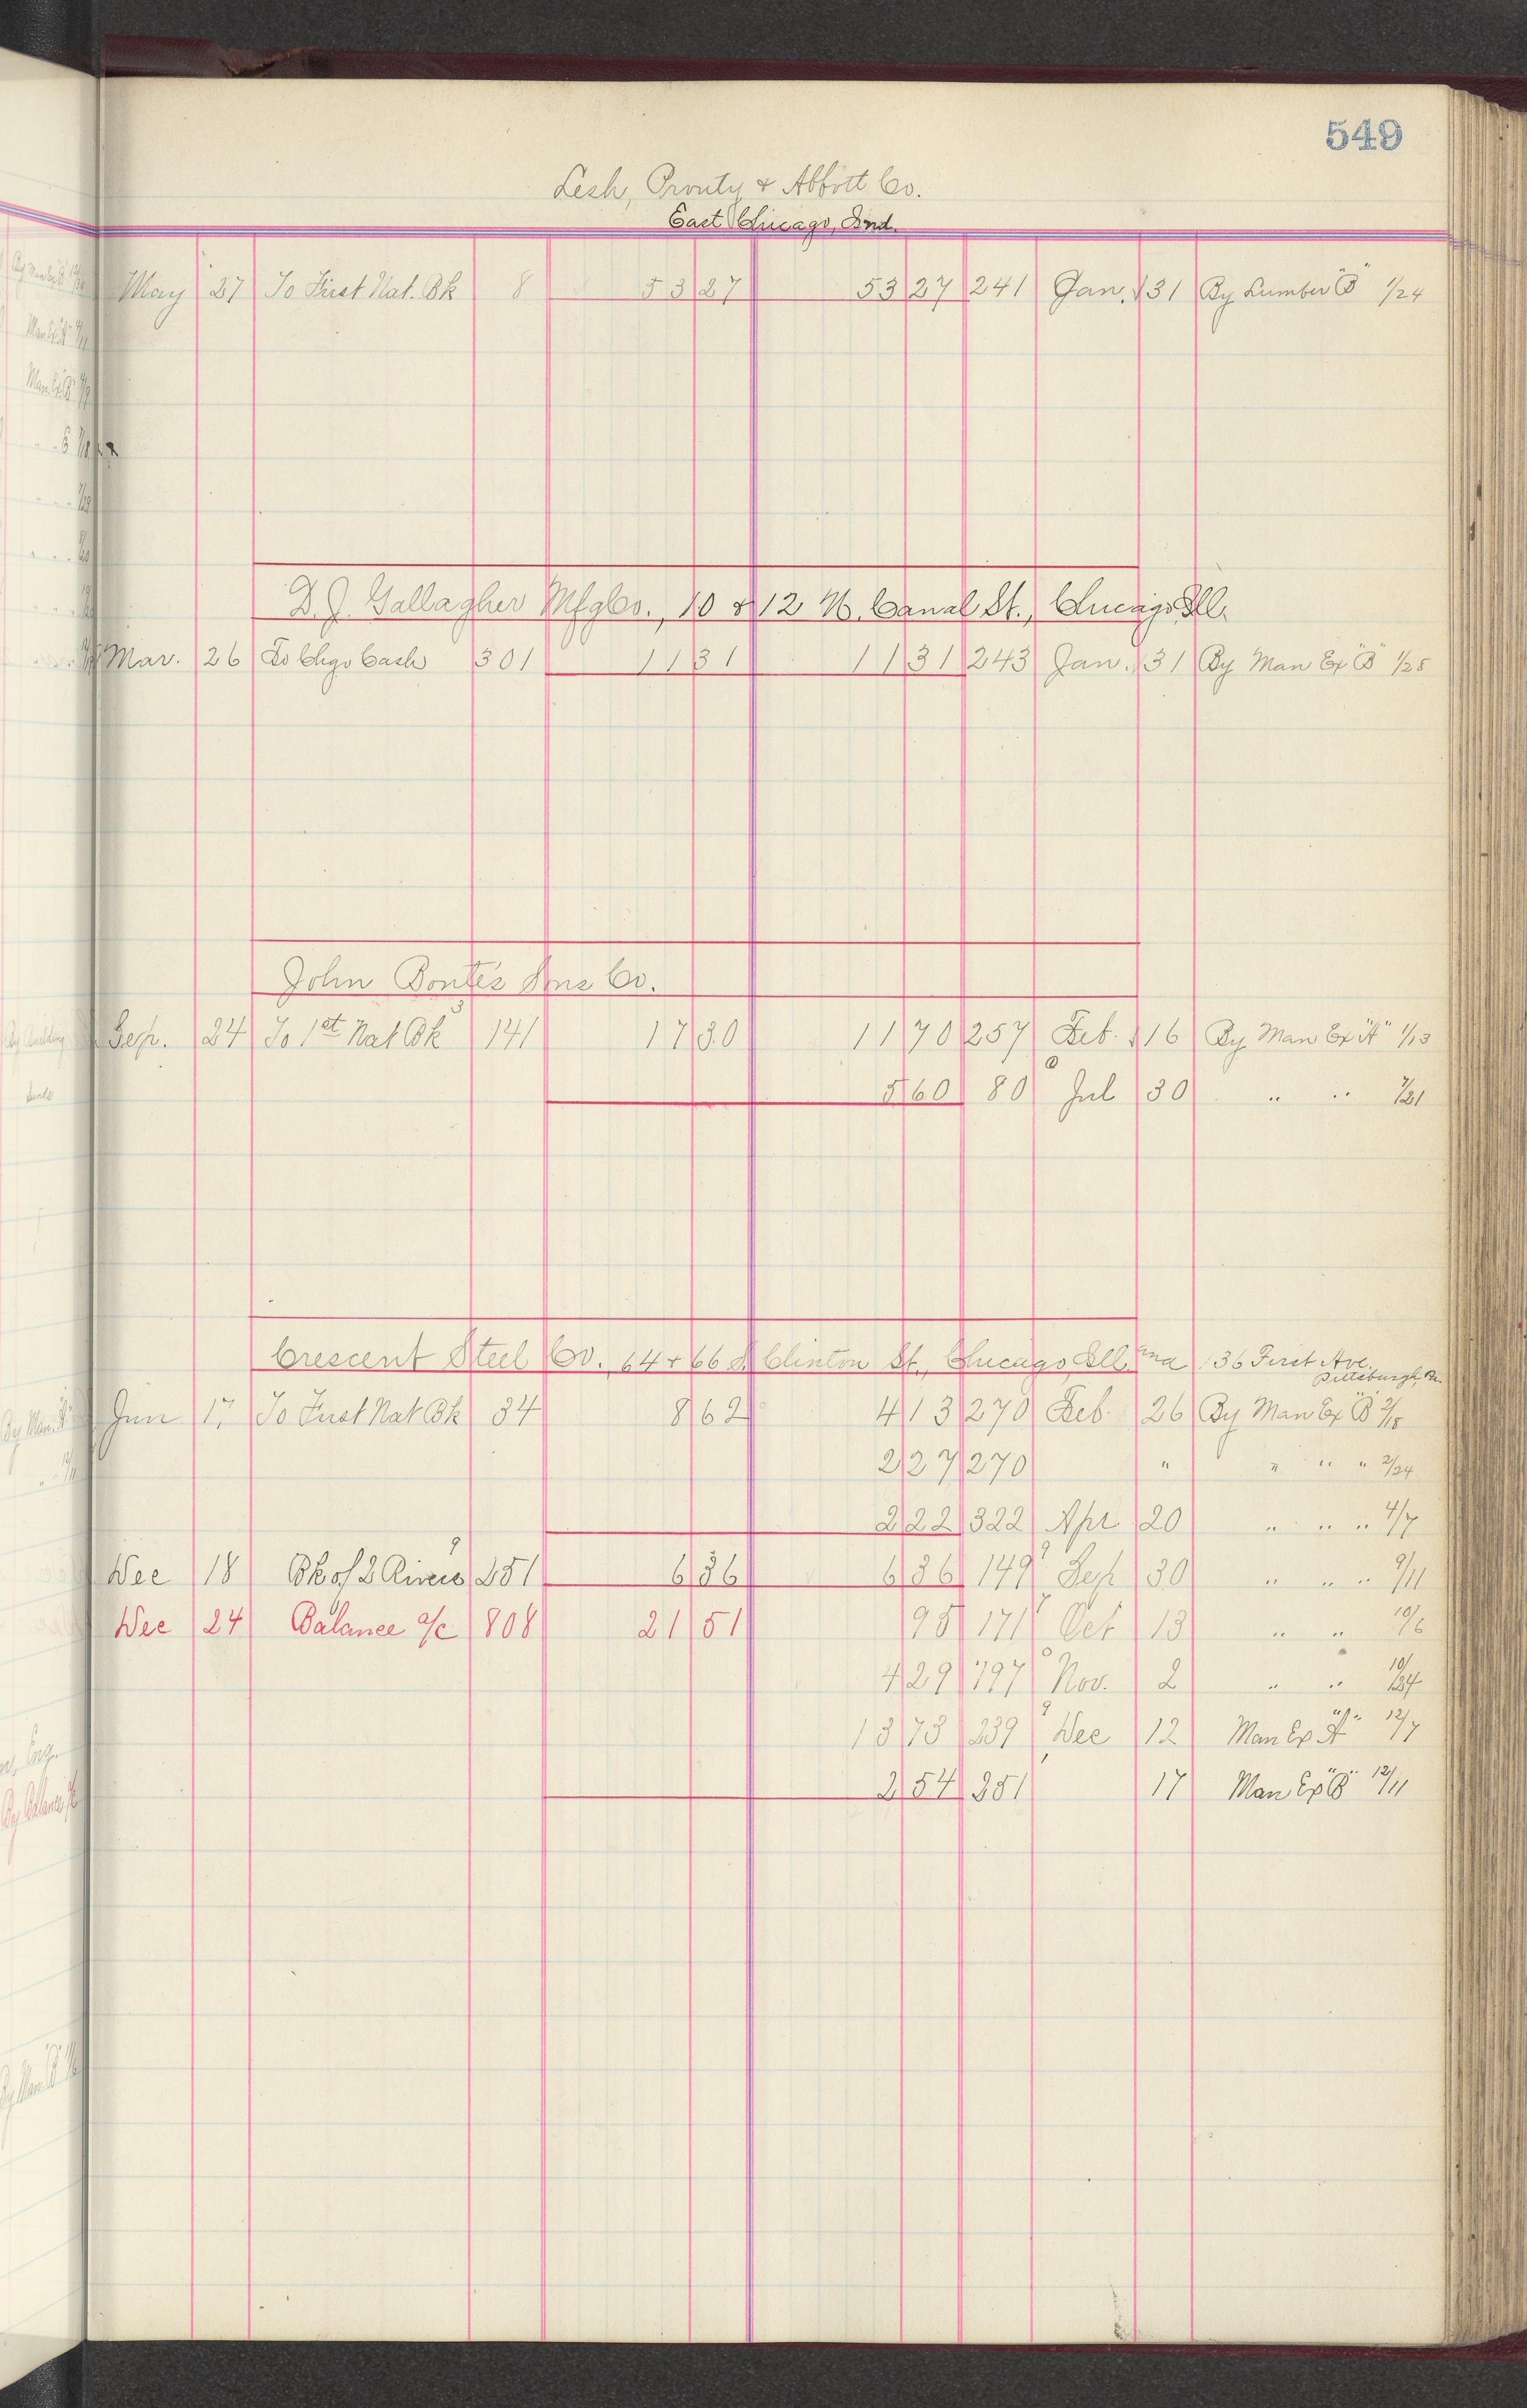 549
Lesh, Prouty & Abbott Co.
East Chicago, Ind.
May 27 To First Nat. Bk 8 53 27 53 27 241 Jan. 31 By Lumber "B" 1/24
D. J. Gallagher Mfg Co., 10 & 12 N. Canal St., Chicago Ill.
Mar. 26 To Chgo Cash 301 11 31 11 31 243 Jan. 31 By Man Ex "B" 1/25
John Bonte's Sons Co.
Sep. 24 To 1st Nat Bk 3 141 17 30 11 70 257 Feb. 16 By Man Ex "A" 1/13
5 60 80 Jul 30 " " 7/21
Crescent Steel Co., 64 & 66 S. Clinton St., Chicago, Ill. and 136 First Ave. Pittsburgh, Pa.
Jun 17 To First Nat Bk 34 8 62 4 13 270 Feb. 26 By Man Ex "B" 2/18
2 27 270 " " " " 2/24
2 22 322 Apr 20 " " " 4/7
Dec 18 Bk of 2 Rivers 9 251 6 36 6 36 149 Sep 30 " " " 9/11
Dec 24 Balance a/c 808 21 51 95 171 Oct 13 " " 10/6
4 29 197 Nov. 2 " " 10/24
13 73 239 Dec 12 Man Ex "A" 12/7
2 54 251 17 Man Ex "B" 12/11